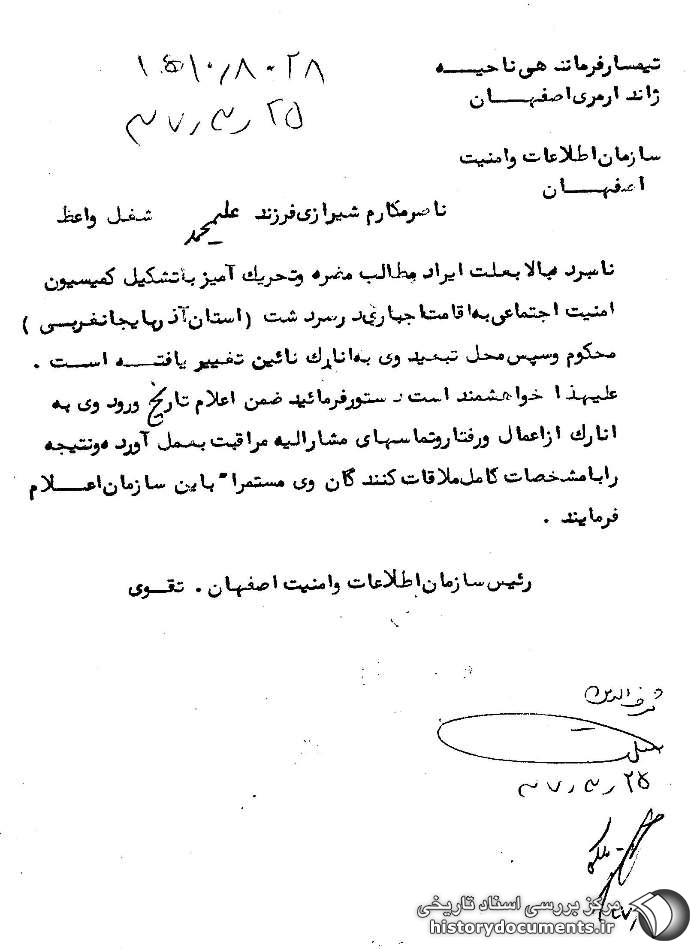 تیمسار فرماندهی ناحیـــه
ژاندارمری اصفهـــان
۲۸-۱۵۱۰/۸
۲۵ر۳ر۳۷
سازمان اطلاعات و امنیت
اصفهـــان
ناصر مکارم شیرازی فرزند علیمحمد شغـل واعظ
نامبرده بالا بعلت ایراد مطالب مضره و تحریک آمیز با تشکیل کمیسیون
امنیت اجتماعی به اقامت اجباری در سردشت (استان آذربایجانغربـی)
محکوم و سپس محل تبعید وی به انارک نائین تغییر یافتــه اســت.
علیهذا خواهشمند است دستور فرمائید ضمن اعلام تاریخ ورود وی به
انارک از اعمال و رفتار و تماسهای مشارالیه مراقبت بعمل آورده و نتیجه
را با مشخصات کامل ملاقات کنندگان وی مستمراً باین سازمان اعـــلام
فرمایند.
رئیس سازمان اطلاعات و امنیت اصفهان. تقـوی
شرف‌الدین
۲۵ر۳ر۳۷
مرکز بررسی اسناد تاریخی
historydocuments.ir